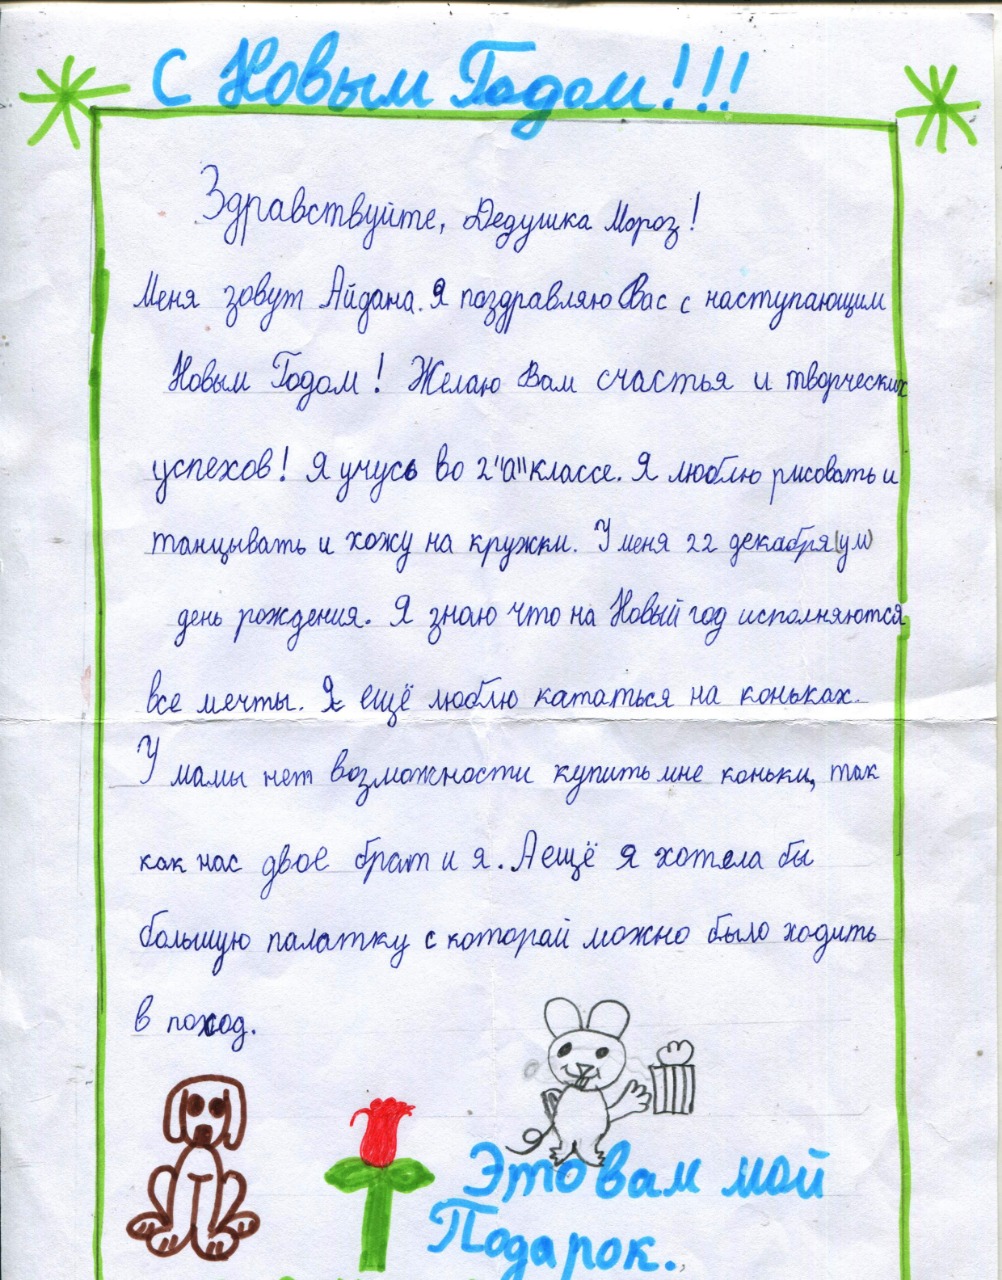 С Новым Годом!!!
Здравствуйте, Дедушка Мороз!
Меня зовут Айдана. Я поздравляю Вас с наступающим
Новым Годом! Желаю Вам счастья и творческих
успехов! Я учусь во 2"а" классе. Я люблю рисовать и
танцывать и хожу на кружки. У меня 22 декабря
день рождения. Я знаю что на Новый год исполняются
все мечты. Я ещё люблю кататься на коньках.
У мамы нет возможности купить мне коньки, так
как нас двое брат и я. А ещё я хотела бы
большую палатку с которой можно было ходить
в поход.
Это вам мой
Подарок.